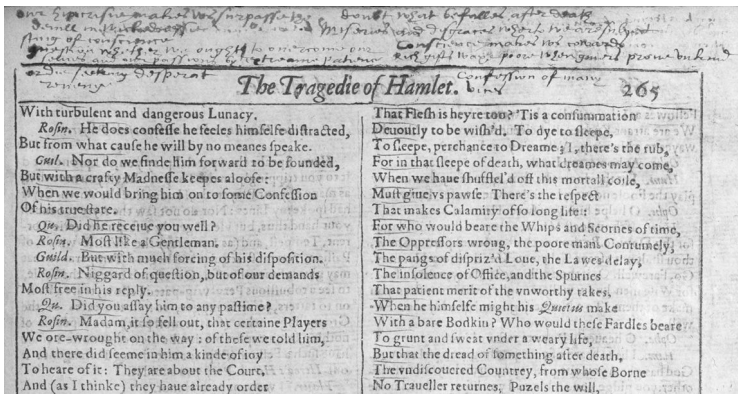 our makes us surpasse the
deuill in wickednesse
sting of conscience
question whether we ought to ouercome our
selues and our passions by extreame patience
or die seeking desperat
revenge
doubt what befalles after death
Miseries and disgraces wherto we are subiect
Conscience makes us cowards
gifts waxe poore when giuers proue vnkind
Confession of many
vices
The Tragedie of Hamlet. 265
With turbulent and dangerous Lunacy.
Rosin. He does confesse he feeles himselfe distracted,
But from what cause he will by no meanes speake.
Guil. Nor do we finde him forward to be sounded,
But with a crafty Madnesse keepes aloofe:
When we would bring him on to some Confession
Of his true state.
Qu. Did he receiue you well?
Rosin. Most like a Gentleman.
Guild. But with much forcing of his disposition.
Rosin. Niggard of question, but of our demands
Most free in his reply.
Qu. Did you assay him to any pastime?
Rosin. Madam, it so fell out, that certaine Players
We ore-wrought on the way: of these we told him,
And there did seeme in him a kinde of ioy
To heare of it: They are about the Court,
And (as I thinke) they haue already order
That Flesh is heyre too? 'Tis a consummation
Deuoutly to be wish'd. To dye to sleepe,
To sleepe, perchance to Dreame; I, there's the rub,
For in that sleepe of death, what dreames may come,
When we haue shuffel'd off this mortall coile,
Must giue vs pawse. There's the respect
That makes Calamity of so long life:
For who would beare the Whips and Scornes of time,
The Oppressors wrong, the poore mans Contumely,
The pangs of dispriz'd Loue, the Lawes delay,
The insolence of Office, and the Spurnes
That patient merit of the vnworthy takes,
When he himselfe might his Quietus make
With a bare Bodkin? Who would these Fardles beare
To grunt and sweat vnder a weary life,
But that the dread of something after death,
The vndiscouered Countrey, from whose Borne
No Traueller returnes, Puzels the will,